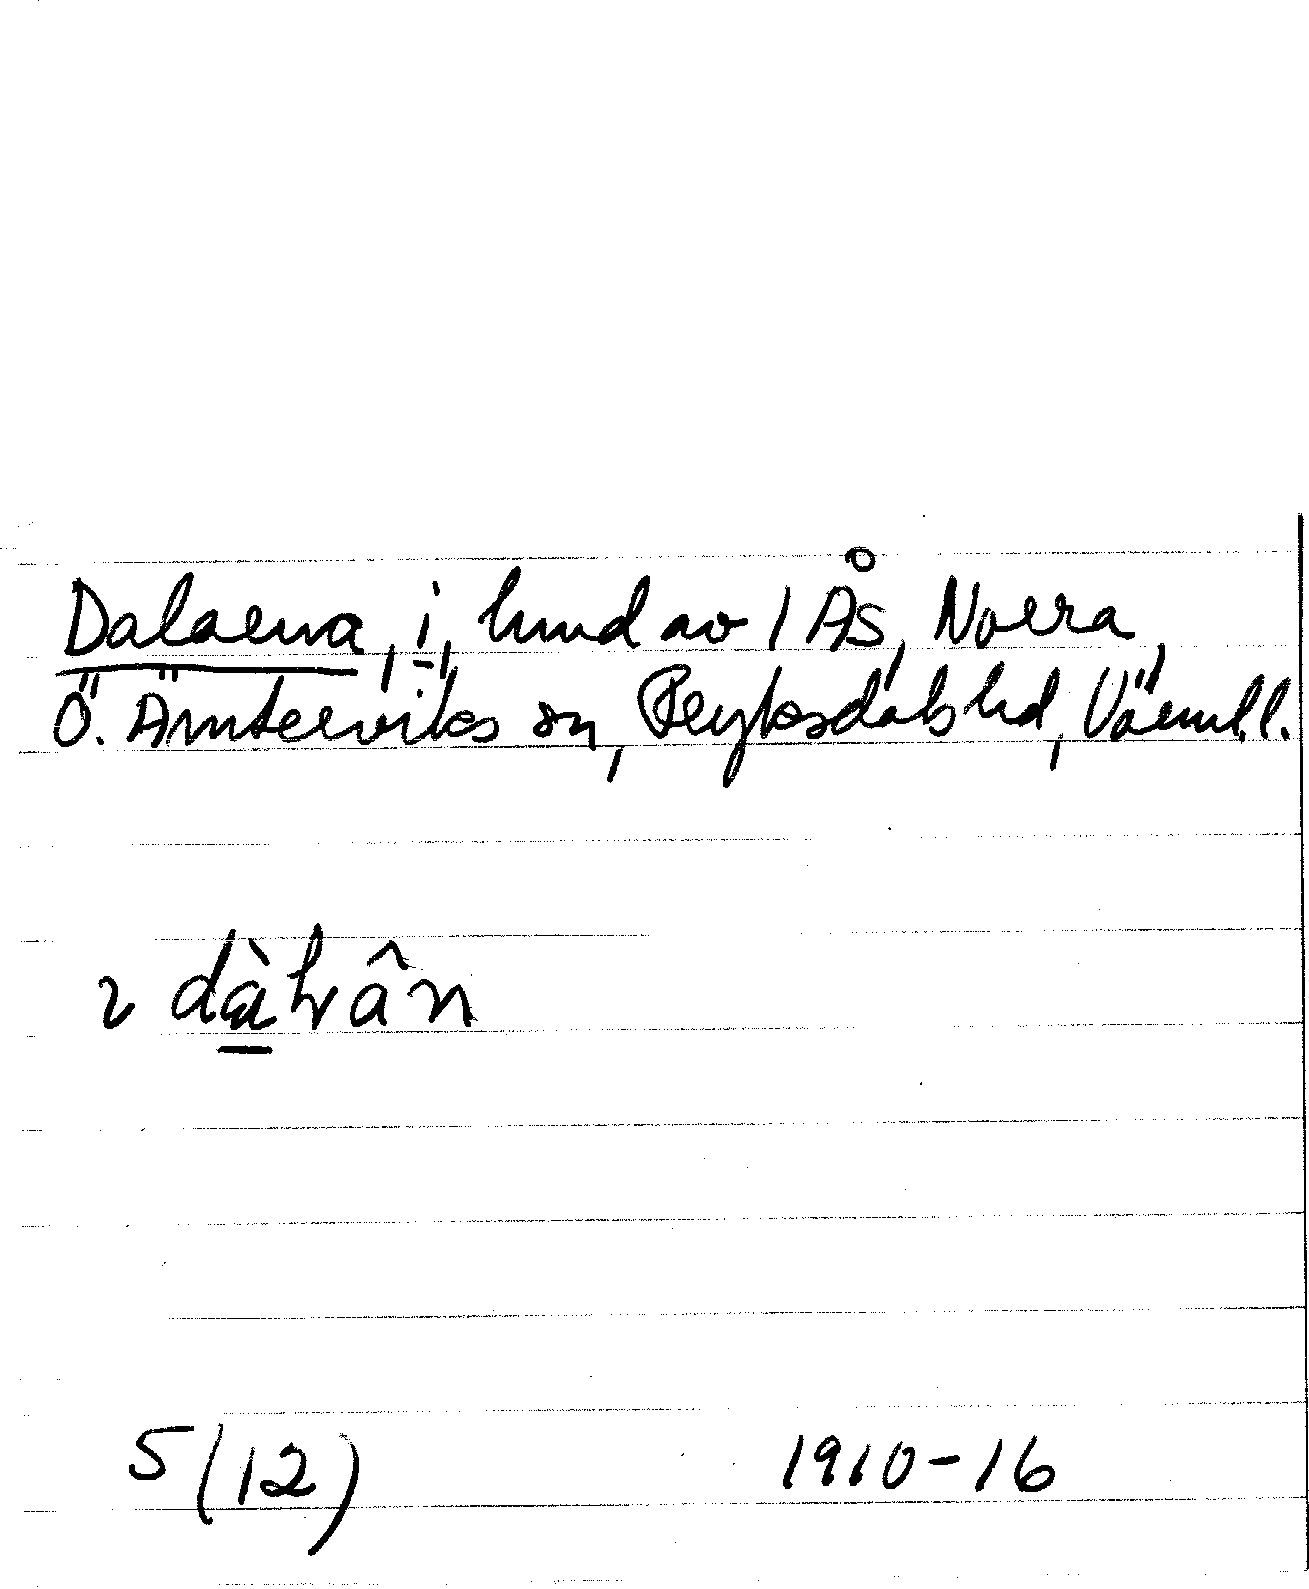 Dalarna, i -, hmd av 1 Ås, Norra,
Ö. Ämterviks sn, Fryksdals hd, Värml.l.
5(12) 1910-16